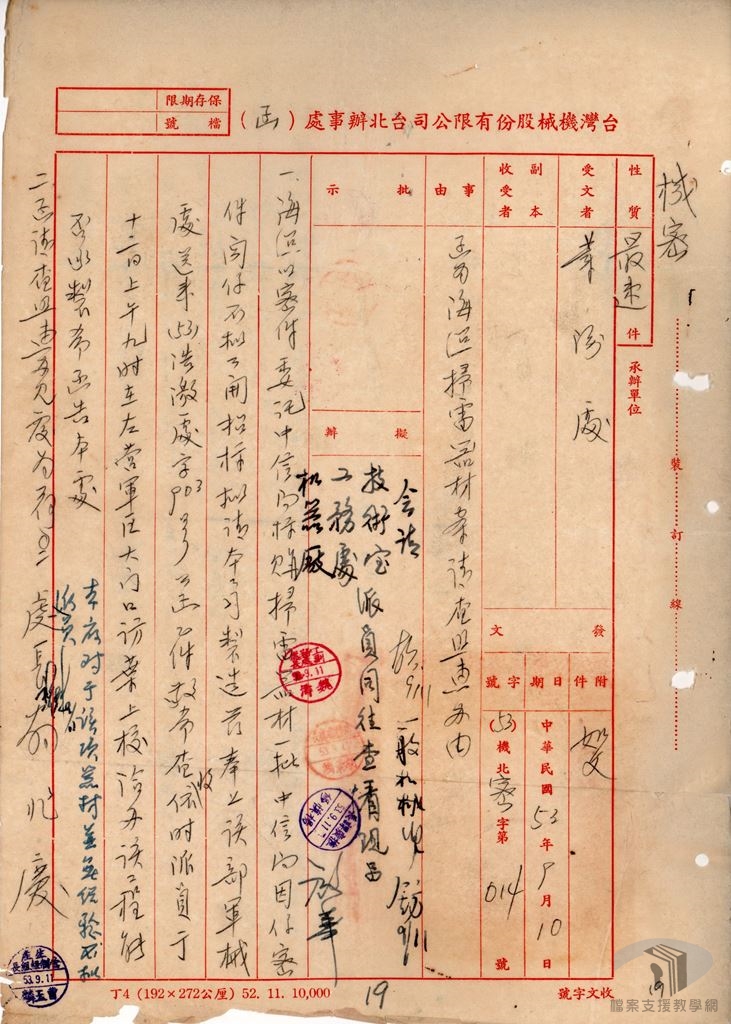 機密
台灣機械股份有限公司台北辦事處（函）
保存期限
檔號
性質 最速件
承辦單位
受文者 業務處
副本收受者
事由 函為海軍掃雷器材案請查照惠辦由
批示
擬辦
會請
技術室
工務處
機器廠
派員同往查看現品
發文
附件 如文
日期 中華民國53年9月10日
字號 (53)機北密字第014號
裝訂線
一、海軍以密件委託中信局標購掃雷器材一批中信局因仔密
件關係不擬公開招標擬請本公司製造茲奉上該部軍械
處送來(53)浩澈處字903號公函一件敬希查收並依時派員于
十二日上午九時在左營軍區大門口訪葉上校洽辦該工程能
否承製希函告本處
二、函請查照惠辦見復為荷
本廠對于該項器材並無經驗不擬
處長
兆慶
53.9.11
53.9.11
53.9.11
丁4（192×272公厘）52. 11. 10,000
19
收文字號
19
檔案支援教學網